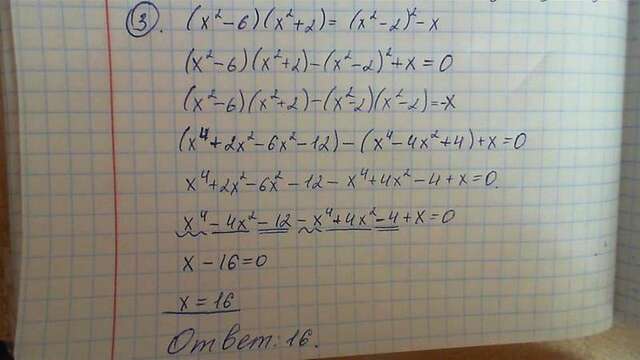 3. (x²-6)(x²+2) = (x²-2)²-x
(x²-6)(x²+2)-(x²-2)²+x=0
(x²-6)(x²+2)-(x²-2)(x²-2)=-x
(x⁴+2x²-6x²-12)-(x⁴-4x²+4)+x=0
x⁴+2x²-6x²-12-x⁴+4x²-4+x=0.
x⁴-4x²-12-x⁴+4x²-4+x=0
x-16=0
x=16
Ответ: 16.